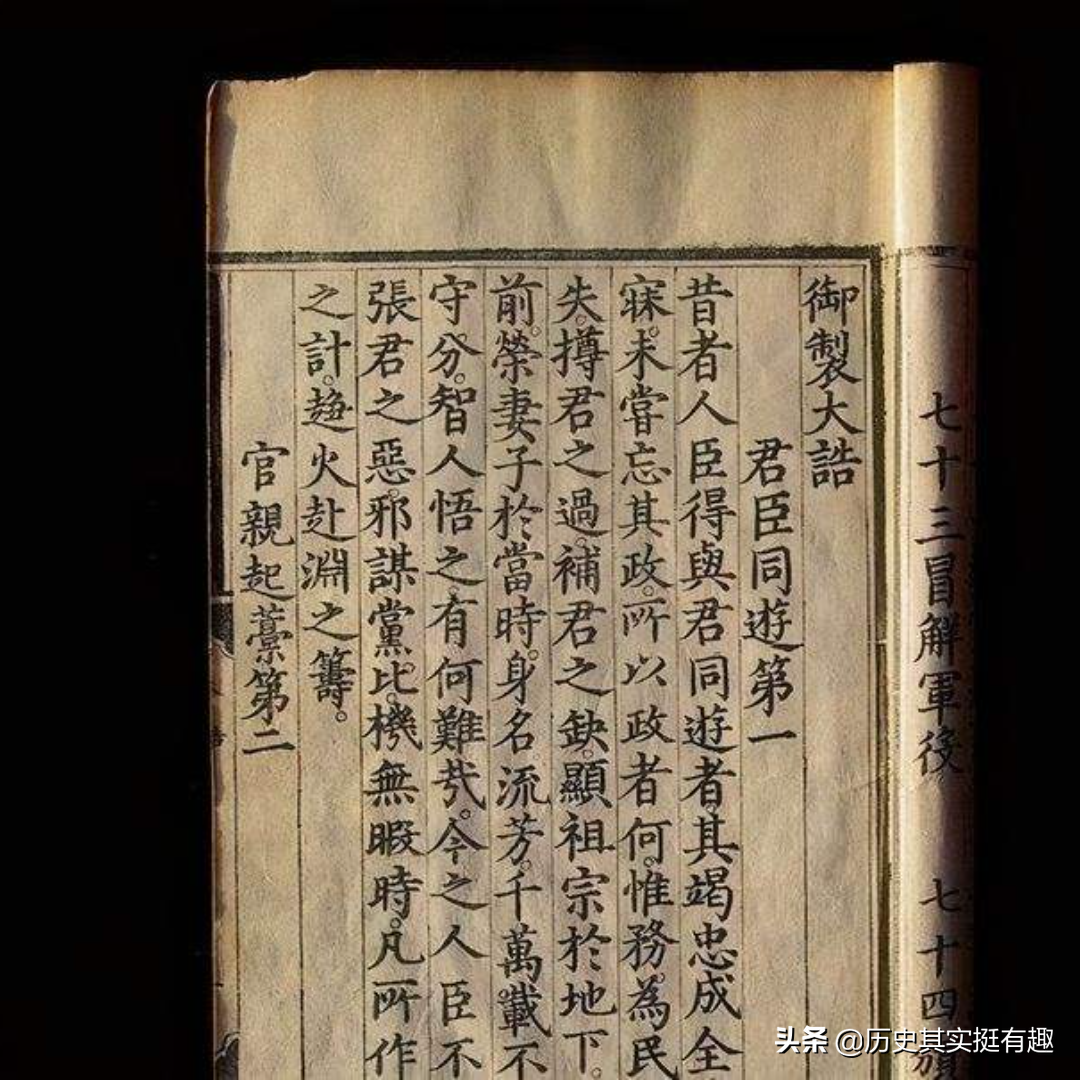 七十三冒解軍役 七十四
御製大誥
君臣同遊第一
昔者人臣得與君同遊者其竭忠成全
寐。未嘗忘其政。所以政者何。惟務。為民
失。撙君之過。補君之缺。顯祖宗於地下。
前。榮妻子於當時。身名流芳。千萬載不
守。分。智人悟之有何難哉。今之人臣不
張君之惡。邪謀黨比。機無暇時。凡所作
之計。趂火赴淵之籌。
官親起藁第二
头条 @历史其实挺有趣